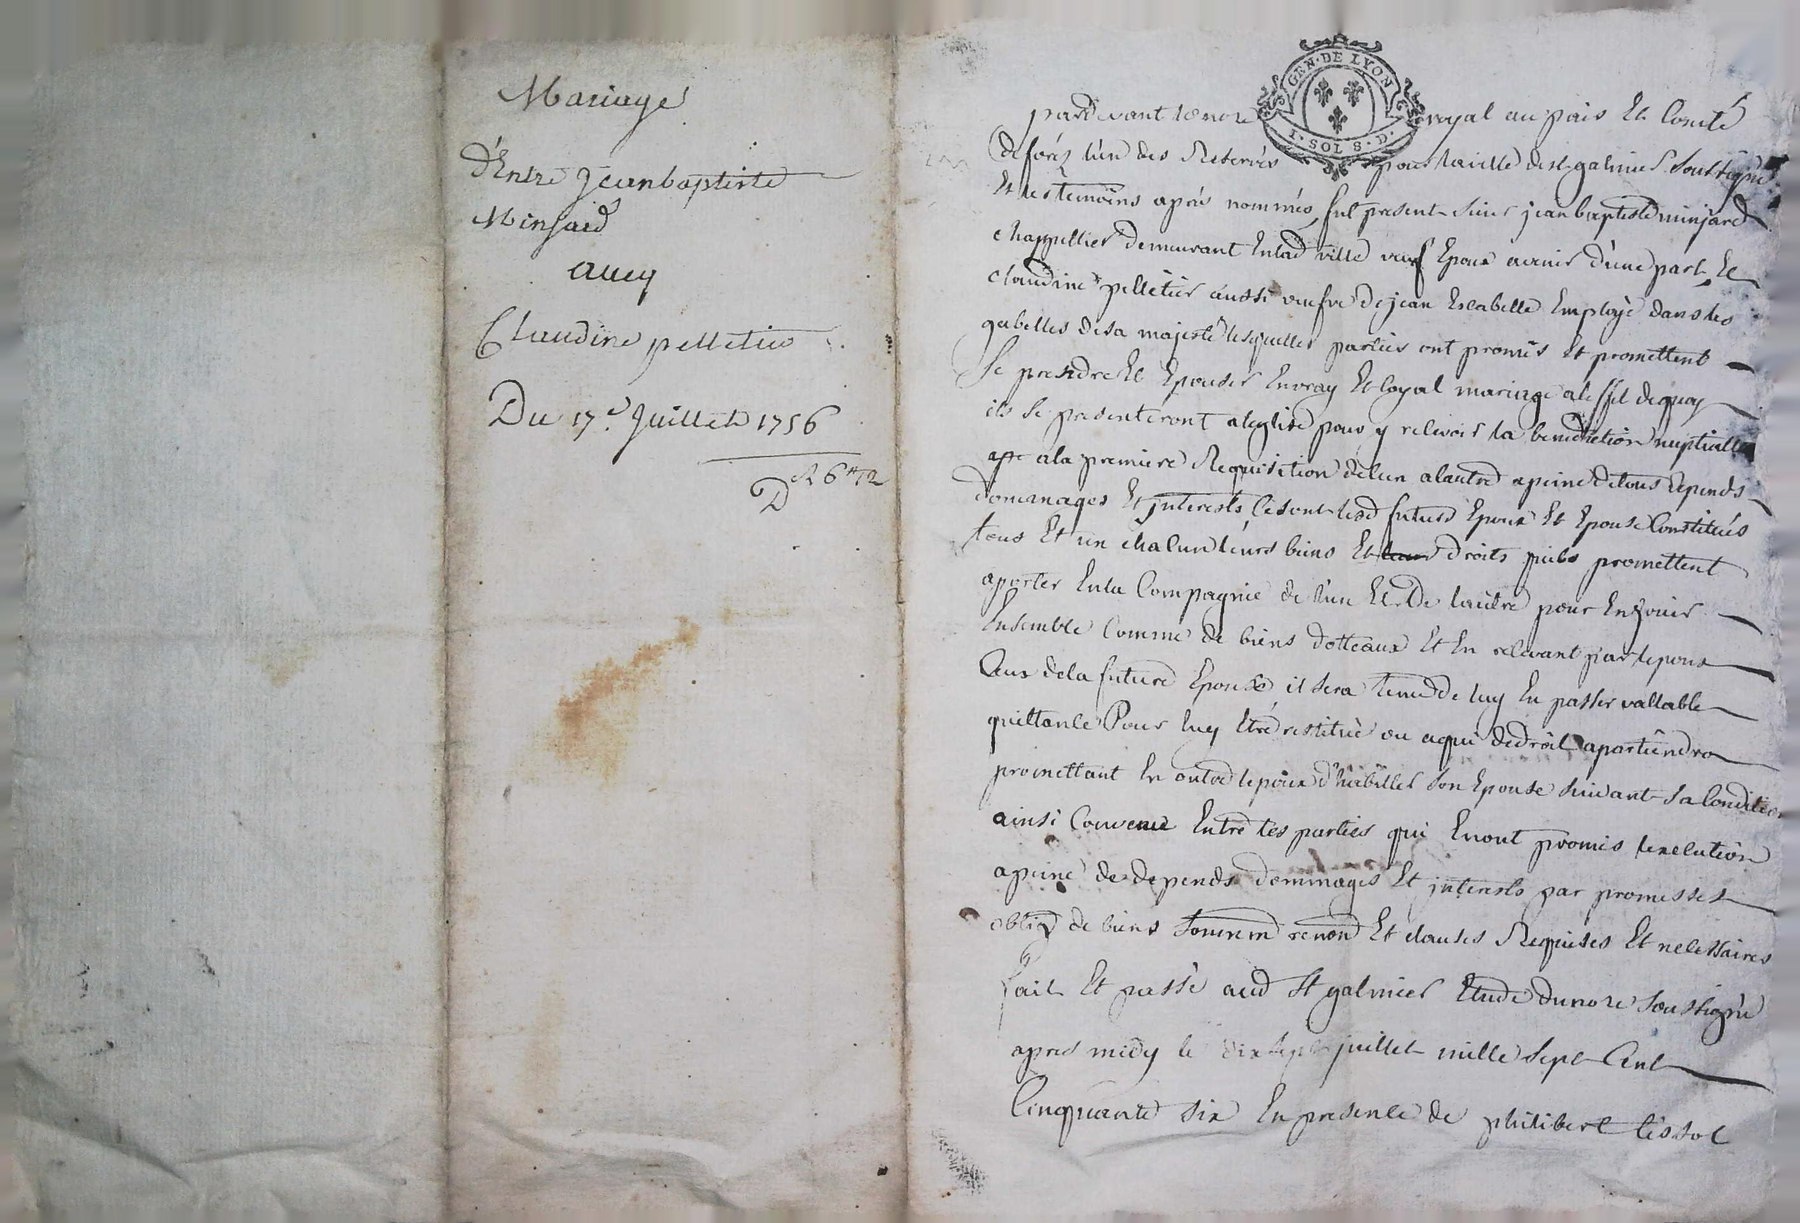 Mariage
d'Entre Jeanbaptiste
Minjard
avecq
Claudine pelletier
Du 17e. Juillet 1756
GEN. DE LYON
1. SOL 8. D.
pardevant le nore royal au païs Et Comté
deforéz l'un des Reservés pour laville de st galmier Soussigné
Et les témoins aprés nommés, fut present sieur jean baptiste minjard
chappellier demeurant Enlad ville veuf Epoux avenir d'une part, Et
claudine pelletier aussi veufve de jean Escabelle Employé dans les
gabelles de sa majesté lesquelles parties ont promis Et promettent
Se prendre Et Epouser Envray Et loyal mariage aleffet dequoy
ils se presenteront aleglise pour y recevoir la benediction nuptialle
ala premiere Requisition del'un alautre apeine detous depends
dommages Et interests se sont lesd futurs Epoux Et Epouse Constitués
tous Et un chacun leurs biens Et leurs droits quils promettent
aporter Enla Compagnie de l'un Et de lautre pour En jouir
Ensemble Comme de biens dotteaux Et En recevant par lepoux
Ceux dela future Epouse, il sera tenu de luy En passer vallable
quittance Pour luy Etre restitué ou aqui dedroit apartiendra
promettant En outre lepoux d'habiller son Epouse suivant sa Condition
ainsi Convenu Entre les parties qui Enont promis lexecution
apeine de depends dommages Et interests par promesses
oblig de biens soumm renon Et clauses Requises Et necessaires
fait Et passé aud st galmier Etude du nore soussigné
apres midy le dix sept juillet mille sept Cent
Cinquante six En presence de philibert